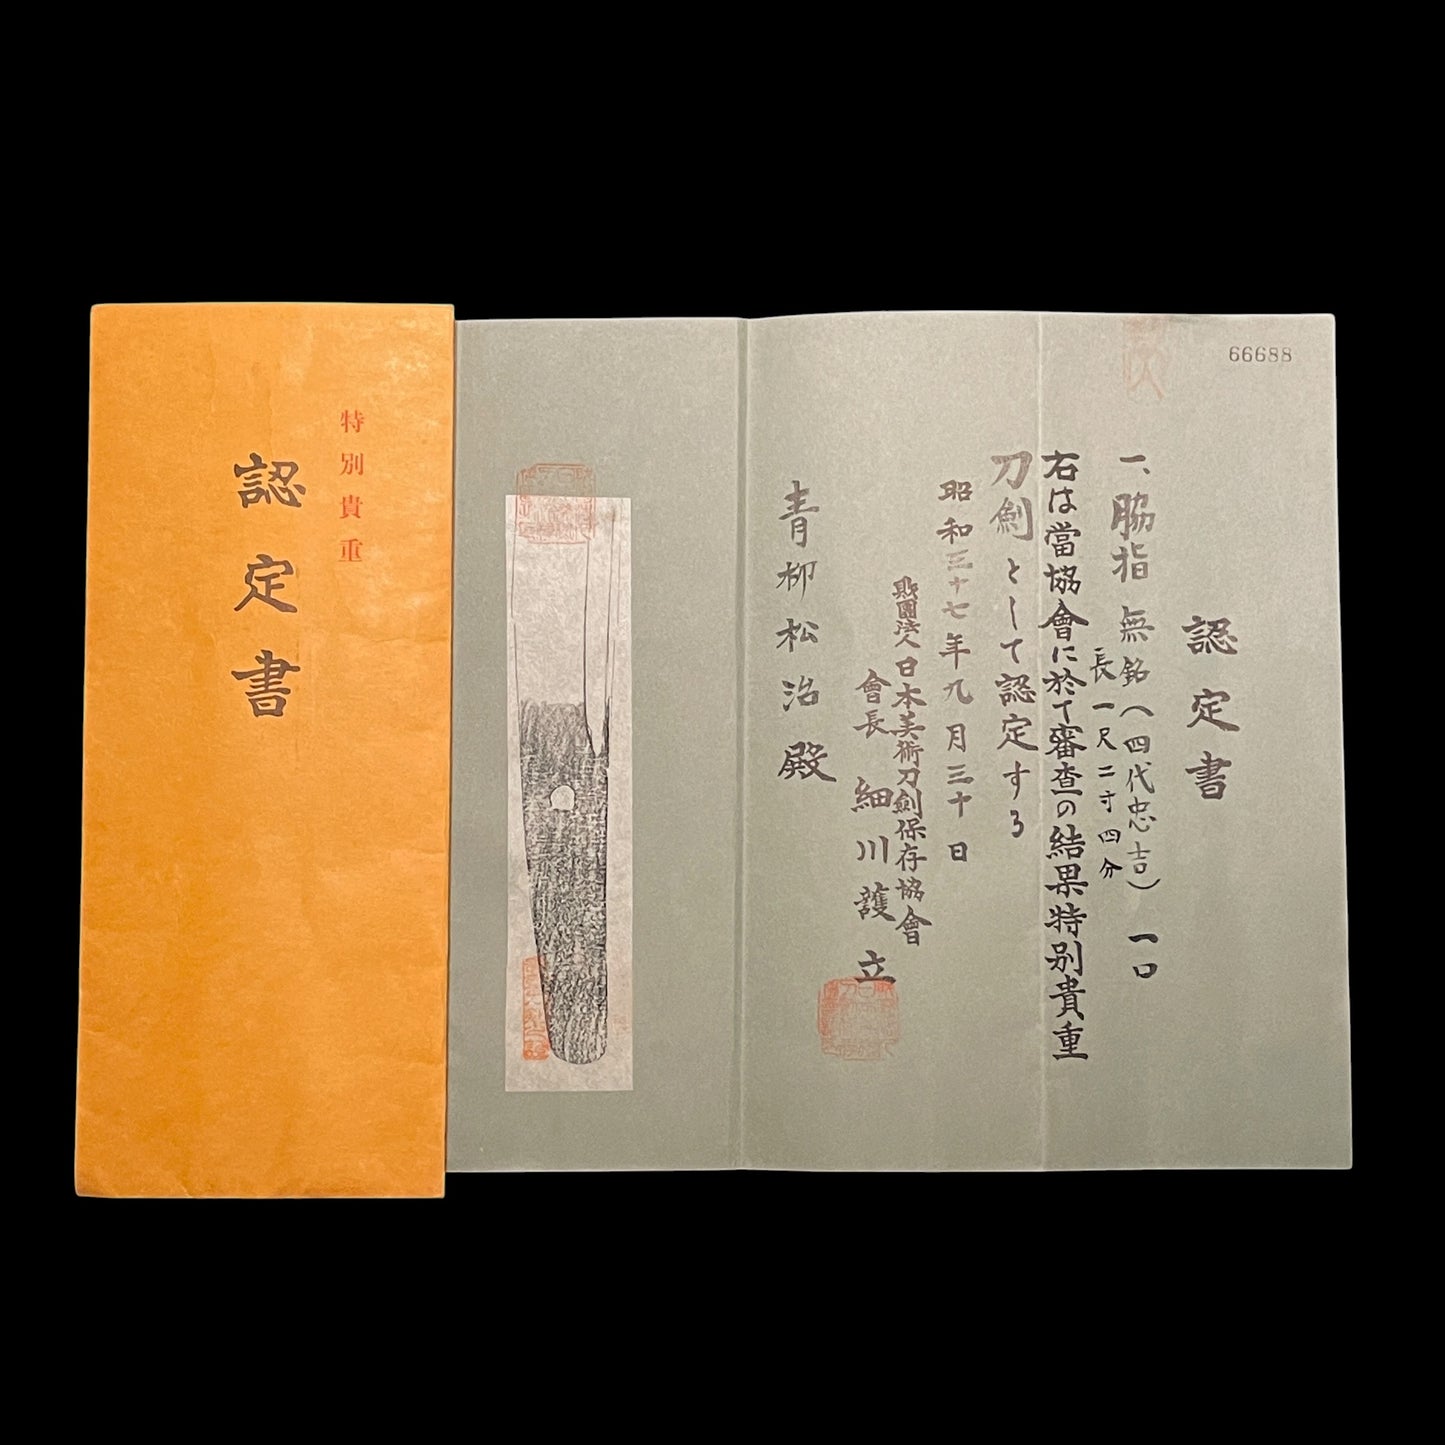 特別貴重
認定書
66688
認定書
一、脇指 無銘(四代忠吉) 一口
長一尺二寸四分
右は當協會に於て審査の結果特別貴重
刀剣として認定する
昭和三十七年九月三十日
財團法人日本美術刀劍保存協會
會長 細川護立
青柳松治殿